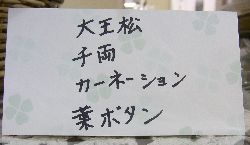 大王松
千両
カーネーション
葉ボタン